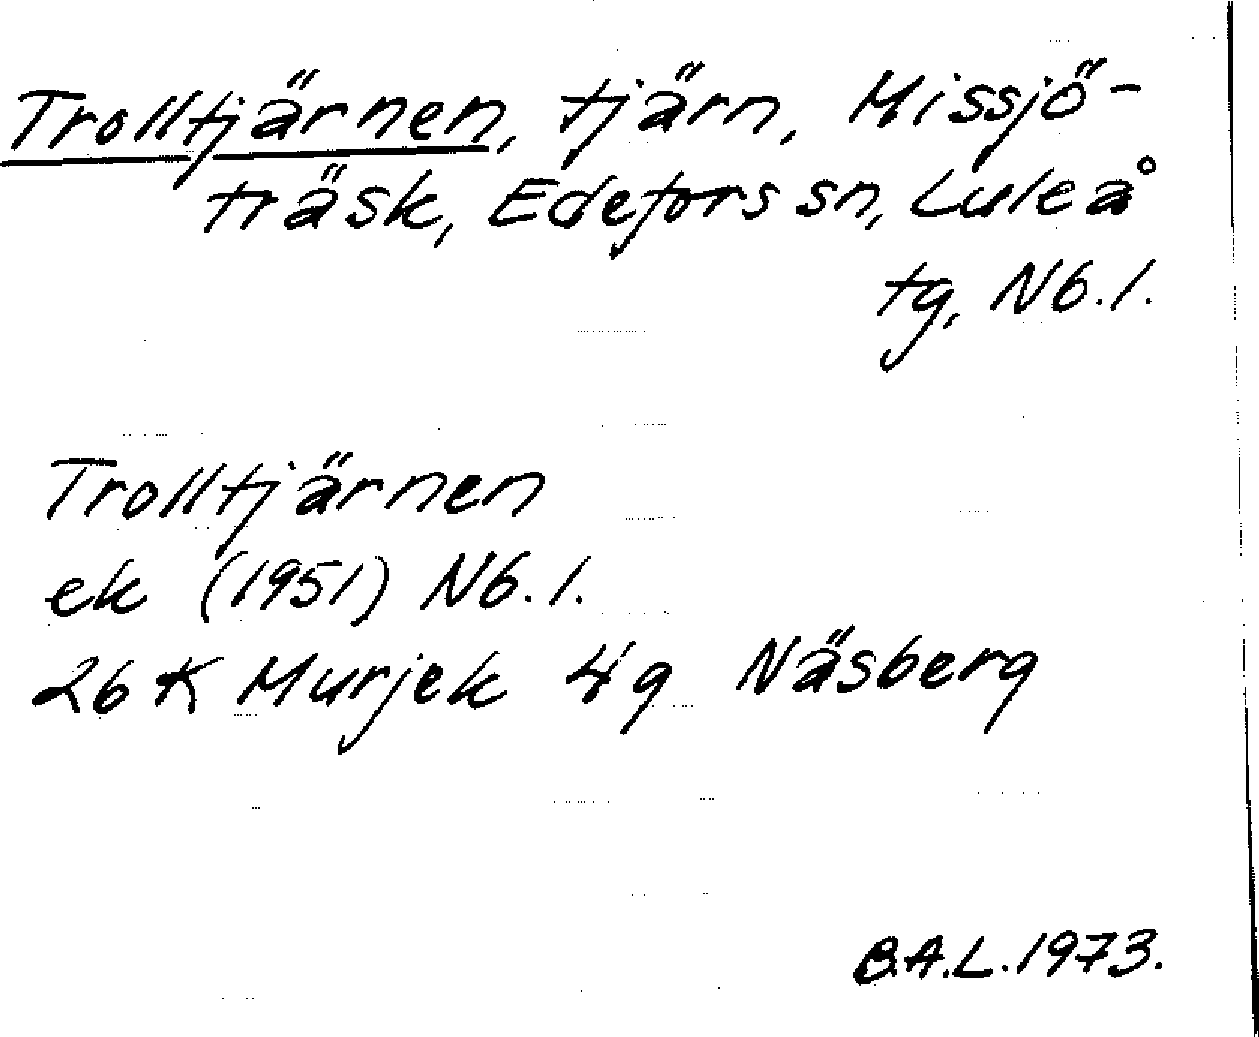 Trolltjärnen, tjärn, Missjö-
träsk, Edefors sn, Luleå
tg, Nb.l.
Trolltjärnen
ek (1951) Nb.l.
26 K Murjek 4g Näsberg
B.A.L. 1973.